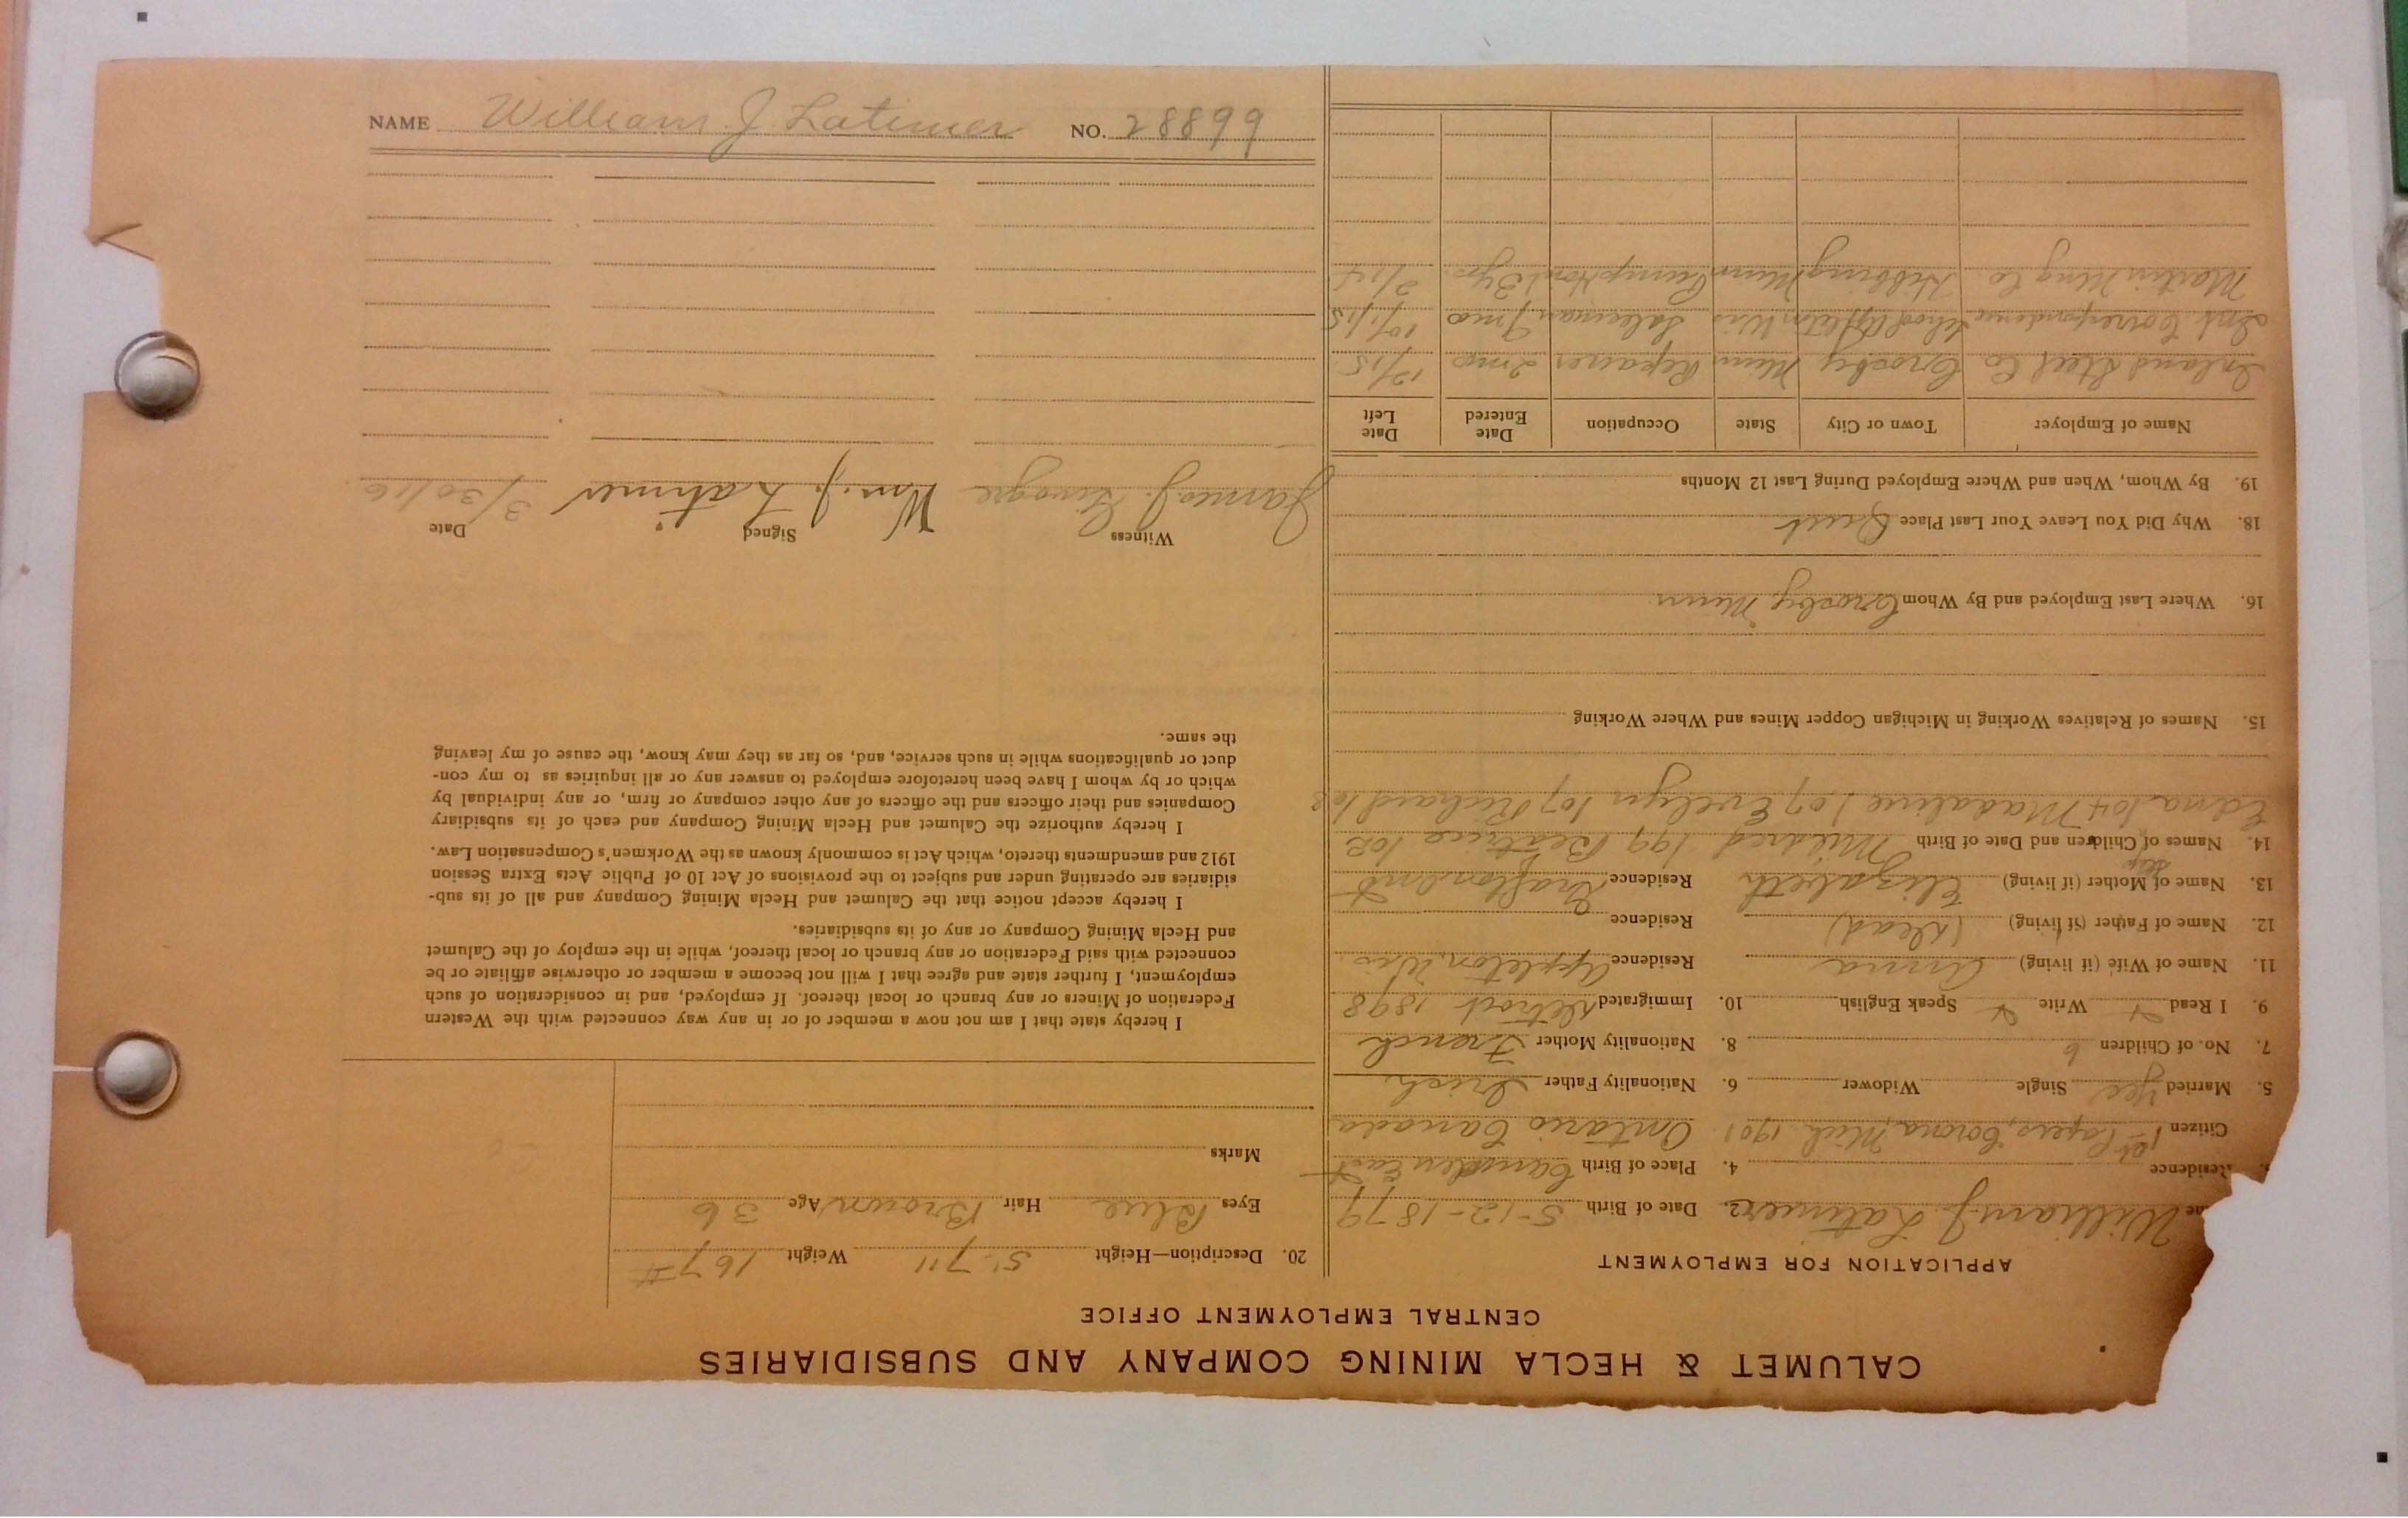 CALUMET & HECLA MINING COMPANY AND SUBSIDIARIES
CENTRAL EMPLOYMENT OFFICE
APPLICATION FOR EMPLOYMENT
William J. Latimer 2. Date of Birth 5-12-1879
Residence 4. Place of Birth Camden East
Citizen 1st Papers, Corona, Mich 1901 Ontario Canada
5. Married yes Single Widower 6. Nationality Father Irish
7. No. of Children 6 8. Nationality Mother French
9. I Read Write Speak English 10. Immigrated Detroit 1898
11. Name of Wife (if living) Anna Residence Appleton, Wis
12. Name of Father (if living) (Dead) Residence
13. Name of Mother (if living) Elizabeth Residence Grafton Ont
14. Names of Children and Date of Birth Mildred 199 Beatrice 102
Edna 104 Madaline 107 Evelyn 107 Richard 108
15. Names of Relatives Working in Michigan Copper Mines and Where Working
16. Where Last Employed and By Whom Crosby, Minn
18. Why Did You Leave Your Last Place Quit
19. By Whom, When and Where Employed During Last 12 Months
Name of Employer Town or City State Occupation Date Entered Date Left
Inland Steel Co Crosby Minn Repairer 2 mo 12/15
Int Correspondence School Appleton Wis Salesman 7 mo 10/1/15
Martin Mng Co Hibbing Minn Pump 3 yrs 2/15
20. Description—Height 5' 7" Weight 167 #
Eyes Blue Hair Brown Age 36
Marks
I hereby state that I am not now a member of or in any way connected with the Western
Federation of Miners or any branch or local thereof. If employed, and in consideration of such
employment, I further state and agree that I will not become a member or otherwise affiliate or be
connected with said Federation or any branch or local thereof, while in the employ of the Calumet
and Hecla Mining Company or any of its subsidiaries.
I hereby accept notice that the Calumet and Hecla Mining Company and all of its sub-
sidiaries are operating under and subject to the provisions of Act 10 of Public Acts Extra Session
1912 and amendments thereto, which Act is commonly known as the Workmen's Compensation Law.
I hereby authorize the Calumet and Hecla Mining Company and each of its subsidiary
Companies and their officers and the officers of any other company or firm, or any individual by
which or by whom I have been heretofore employed to answer any or all inquiries as to my con-
duct or qualifications while in such service, and, so far as they may know, the cause of my leaving
the same.
Witness Signed Date
James J. Wm. J. Latimer 3/30/16
NAME William J. Latimer NO. 28899